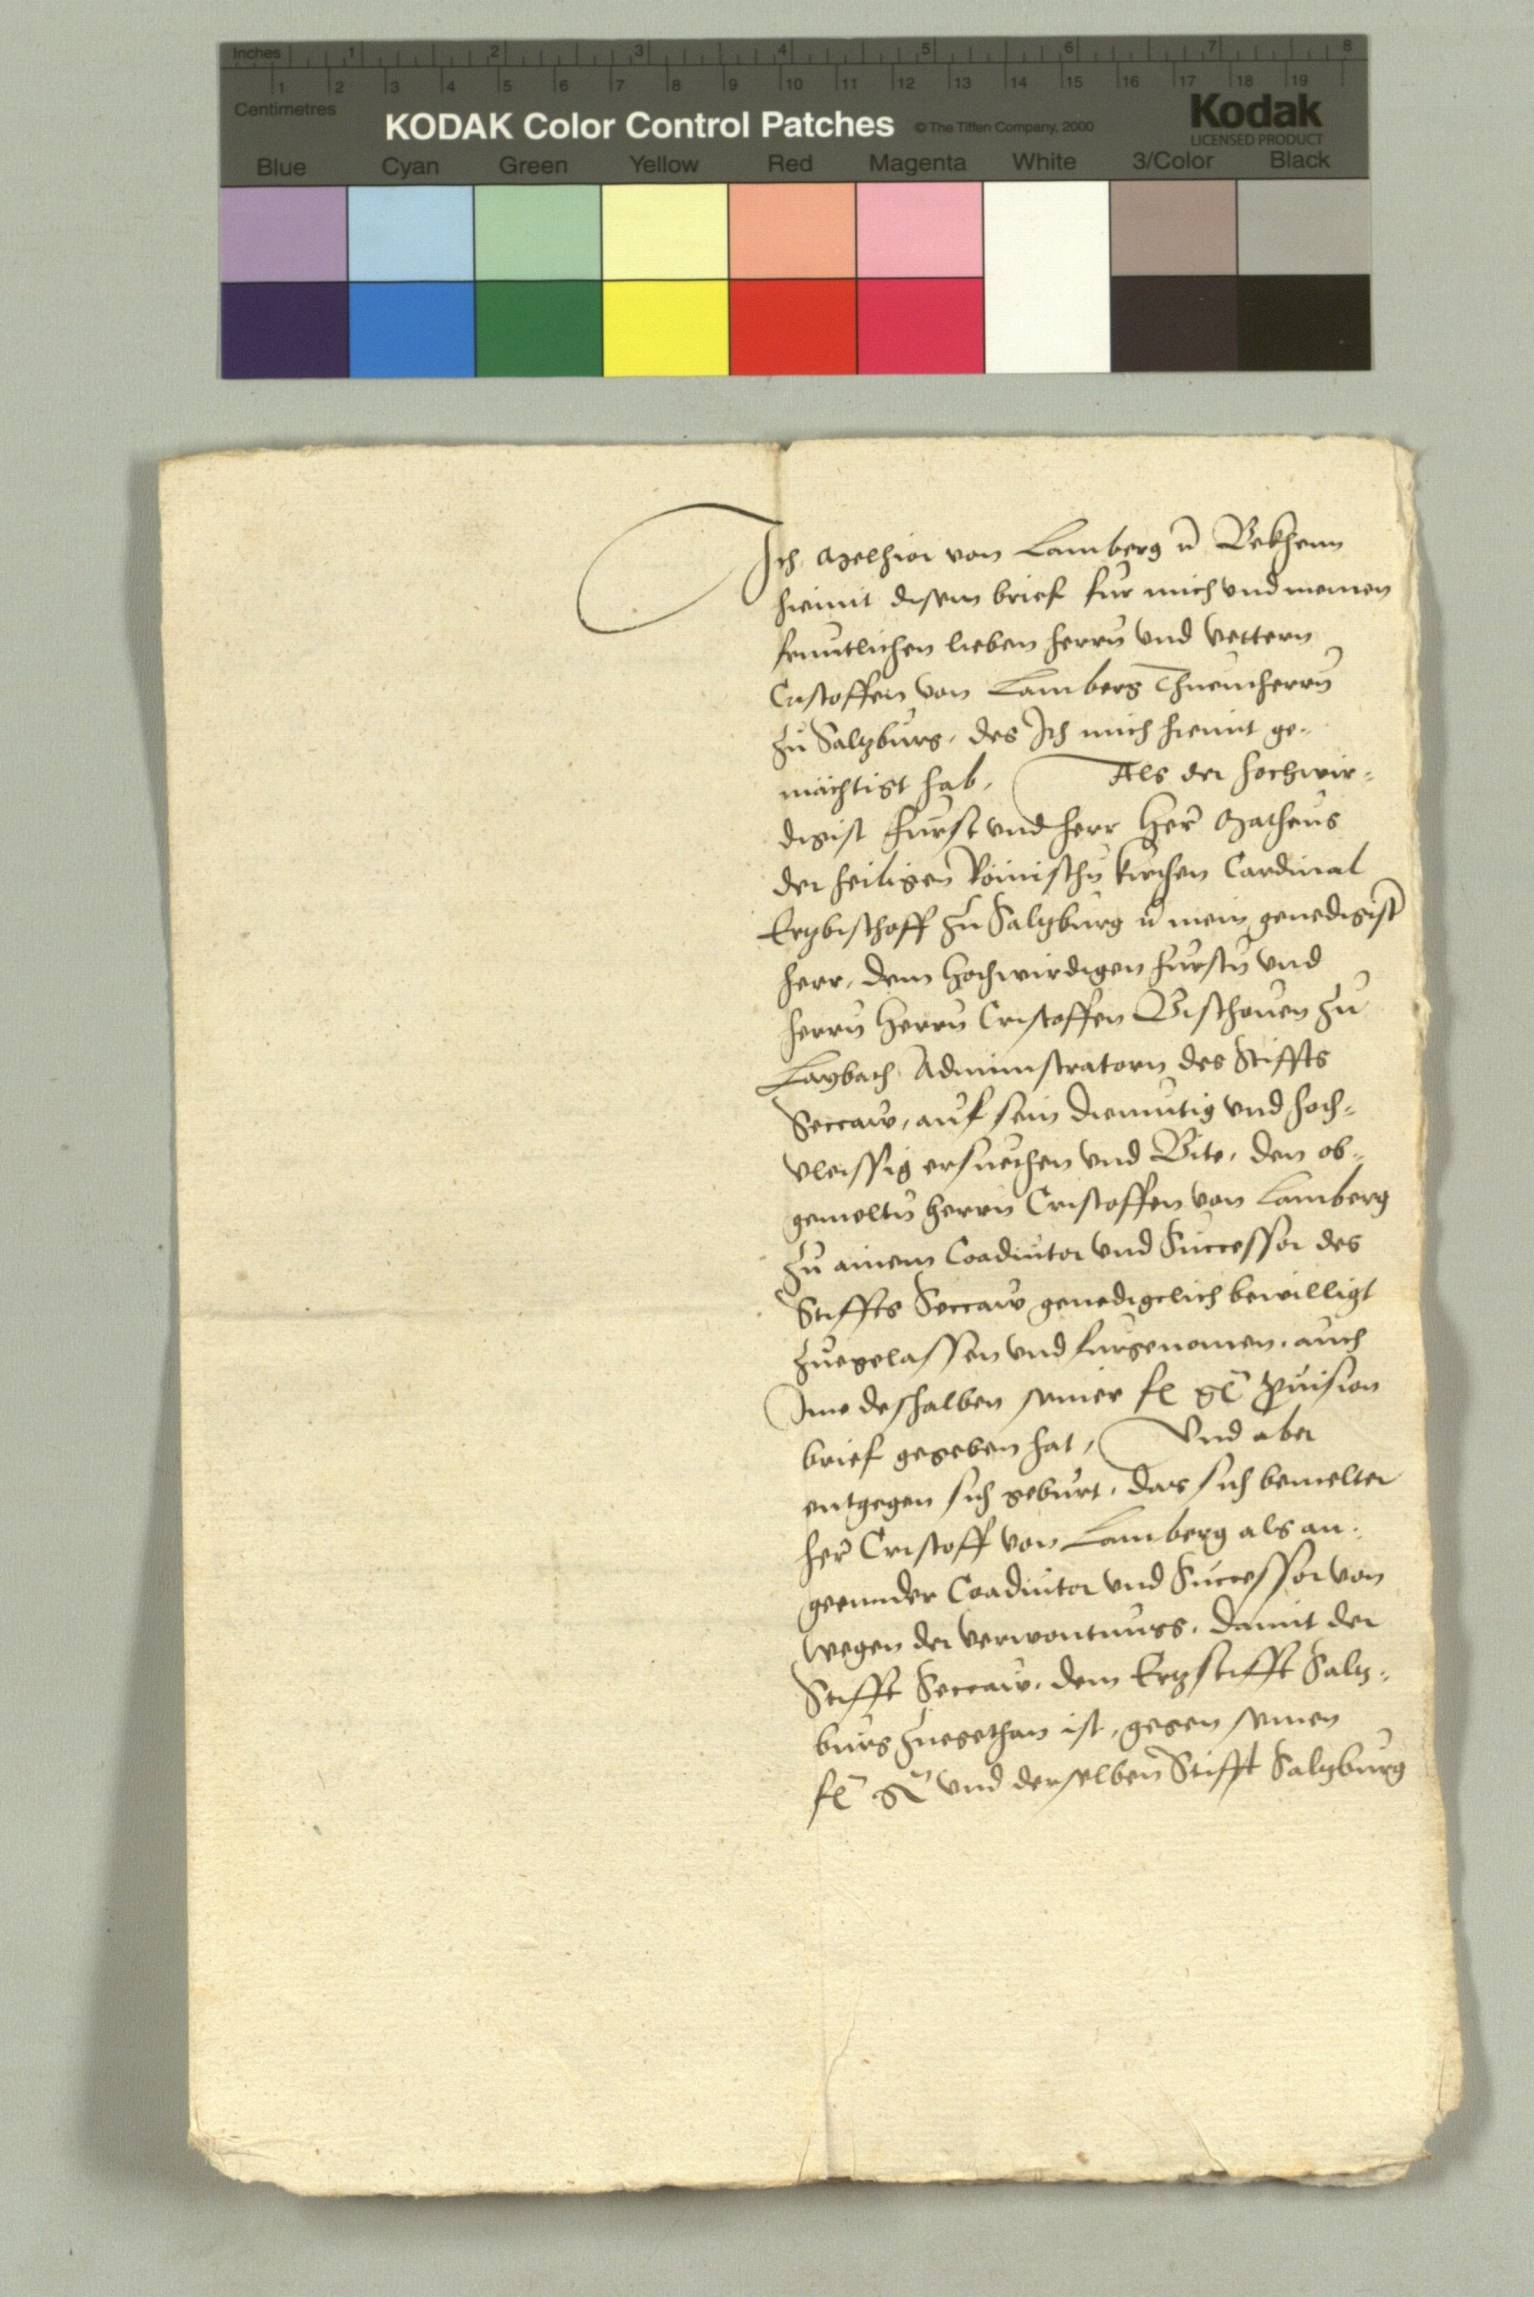 Inches 1 2 3 4 5 6 7 8
1 2 3 4 5 6 7 8 9 10 11 12 13 14 15 16 17 18 19
Centimetres
KODAK Color Control Patches © The Tiffen Company, 2000 Kodak
LICENSED PRODUCT
Blue Cyan Green Yellow Red Magenta White 3/Color Black
Ich Melhior von Lamberg Bekhenn
hiemit disem brief fur mich vnd meinen
freuntlichen lieben herrn vnd vettern
Cristoffen von Lamberg Thuemherrn
zu Saltzburg, des Ich mich hiemit ge-
mächtigt hab, Als der hochwir-
digist Furst vnd herr Her Matheus
der heiligen Römischn kirchen Cardinal
Ertzbischoff zu Saltzburg mein genedigist
herr, dem Hochwirdigen Furstn vnd
herrn Herrn Cristoffen Bischouen zu
Laybach Administratorn des Stiffts
Seccaw, auf sein diemutig vnd hoch-
vleissig ersuechen vnd Bite, den ob-
gemeltn herrn Cristoffen von Lamberg
zu ainem Coadiutor vnd Successor des
Stiffts Seccaw genedigclich bewilligt
zuegelassen vnd furgenomen, auch
Ime deshalben seiner fl gl prouision
brief gegeben hat, Vnd aber
entgegen sich geburt, das sich bemelter
her Cristoff von Lamberg als an-
geennder Coadiutor vnd Successor von
wegen der verwontnuss, damit der
Stifft Seccaw, dem Ertzstifft Saltz-
burg zuegethan ist, gegen seinen
fl gl vnd derselben Stifft Saltzburg